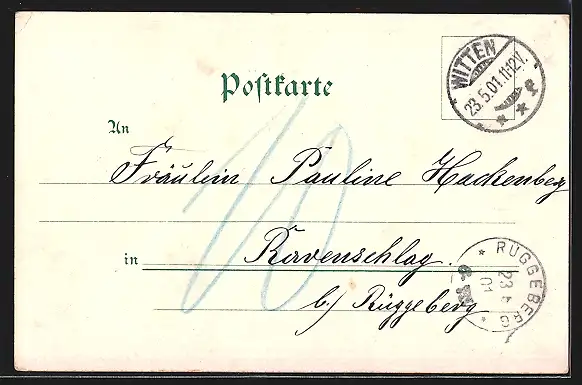 WITTEN
23.5.01.11-12V.
Postkarte
An
10
Fräulein Pauline Hackenberg
in Ravenschlag.
b/ Rüggeberg
RÜGGEBERG
23
01